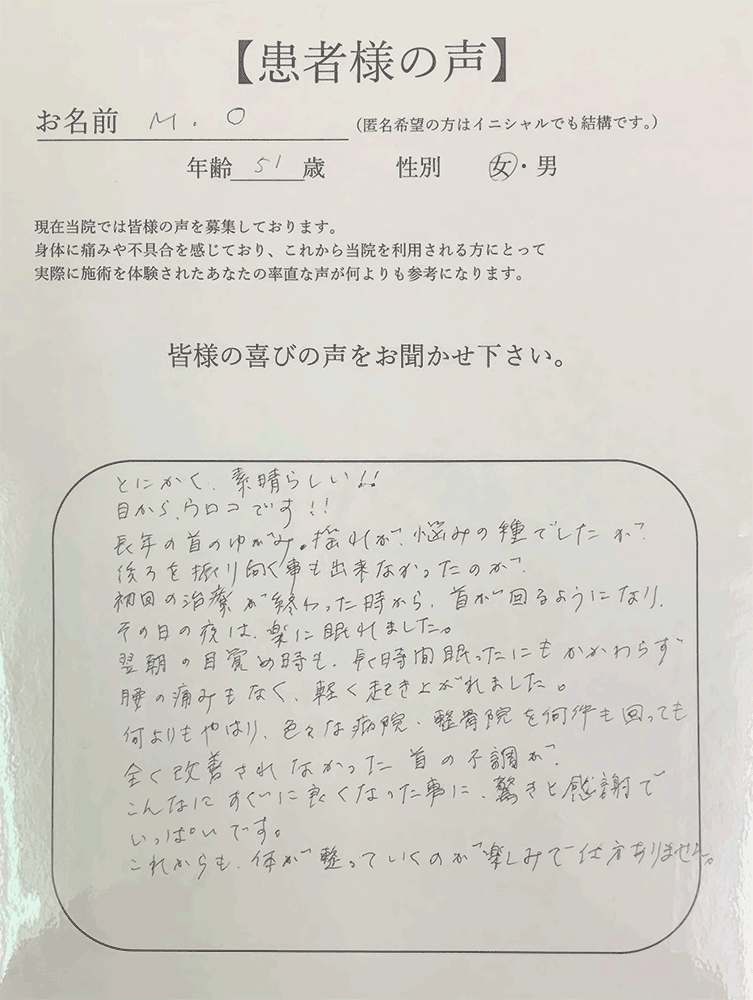 【患者様の声】
お名前 M.O (匿名希望の方はイニシャルでも結構です。)
年齢 51 歳 性別 女・男
現在当院では皆様の声を募集しております。
身体に痛みや不具合を感じており、これから当院を利用される方にとって
実際に施術を体験されたあなたの率直な声が何よりも参考になります。
皆様の喜びの声をお聞かせ下さい。
とにかく、素晴らしい!!
目から、ウロコです!!
長年の首のゆがみ。揺れが、悩みの種でしたが、
後ろを振り向く事も出来なかったのが、
初回の治療が終わった時から、首が回るようになり、
その日の夜は、楽に眠れました。
翌朝の目覚め時も、長時間眠ったにもかかわらず
腰の痛みもなく、軽く起き上がれました。
何よりもやはり、色々な病院、整骨院を何件も回っても
全く改善されなかった首の不調が、
こんなにすぐに良くなった事に、驚きと感謝で
いっぱいです。
これからも、体が整っていくのが楽しみで仕方ありません。